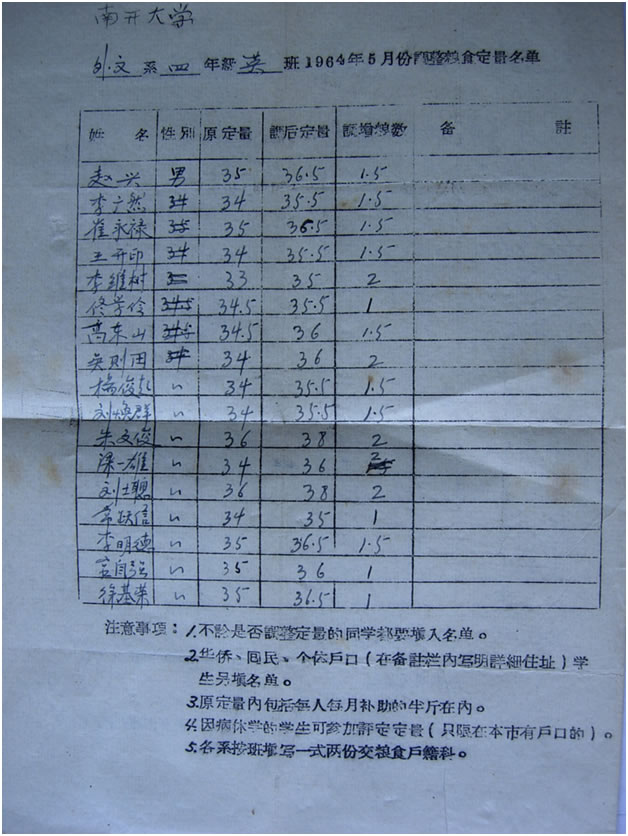 南开大学
外文系四年級英班1964年5月份調整粮食定量名单
姓名 性别 原定量 調后定量 調增斤数 备註
赵兴 男 35 36.5 1.5
李广然 34 35.5 1.5
崔永禄 35 36.5 1.5
王开印 34 35.5 1.5
李維树 33 35 2
佟学伶 34.5 35.5 1
高东山 34.5 36 1.5
吴则田 34 36 2
楊俊 〃 34 35.5 1.5
刘 群 〃 34 35.5 1.5
朱文俊 〃 36 38 2
梁一雄 〃 34 36 2
刘士聰 〃 36 38 2
常跃信 〃 34 35 1
李明德 〃 35 36.5 1.5
自强 〃 35 36 1
徐基荣 〃 35 36.5 1
注意事項：1.不論是否調整定量的同学都要填入名单。
2.华侨、回民、个体戶口（在备註栏内写明詳細住址）学
生另填名单。
3.原定量内包括每人每月补助的半斤在内。
4.因病休学的学生可参加評定定量（只限在本市有戶口的）。
5.各系按班填写一式两份交粮食戶籍科。